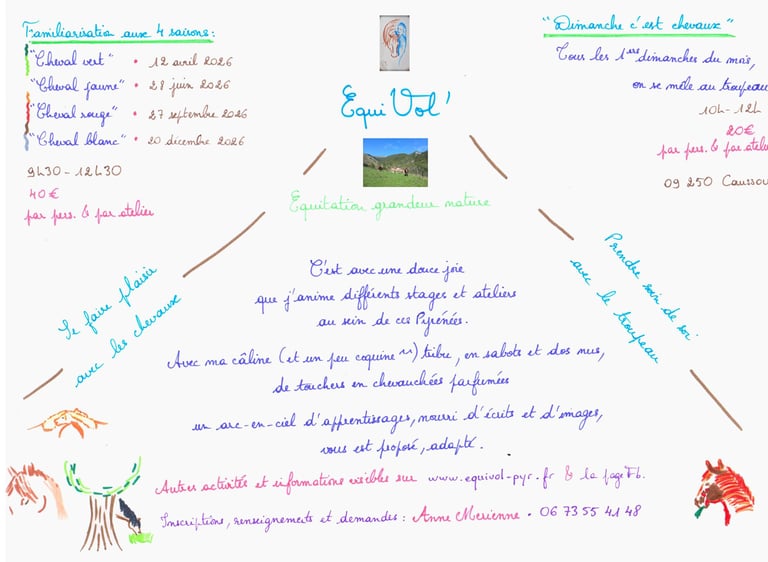 Familiarisation aux 4 saisons :
"Cheval vert" • 12 avril 2026
"Cheval jaune" • 28 juin 2026
"Cheval rouge" • 27 septembre 2026
"Cheval blanc" • 20 décembre 2026
9h30 - 12h30
40€
par pers. & par atelier
Equi Vol'
Equitation grandeur nature
"Dimanche c'est chevaux"
Tous les 1ers dimanches du mois,
on se mêle au troupeau
10h - 12h
20€
par pers. & par atelie
09 250 Caussou
Se faire plaisir
avec les chevaux
Prendre soin de soi
avec le troupeau
C'est avec une douce joie
que j'anime différents stages et ateliers
au sein de ces Pyrénées.
Avec ma câline (et un peu coquine ^^) tribu, en sabots et dos nus,
de touchers en chevauchées parfumées
un arc-en-ciel d'apprentissages, nourri d'écrits et d'images,
vous est proposé, adapté.
Autres activités et informations visibles sur www.equivol-pyr.fr & la page Fb.
Inscriptions, renseignements et demandes : Anne Merienne • 06 73 55 41 48